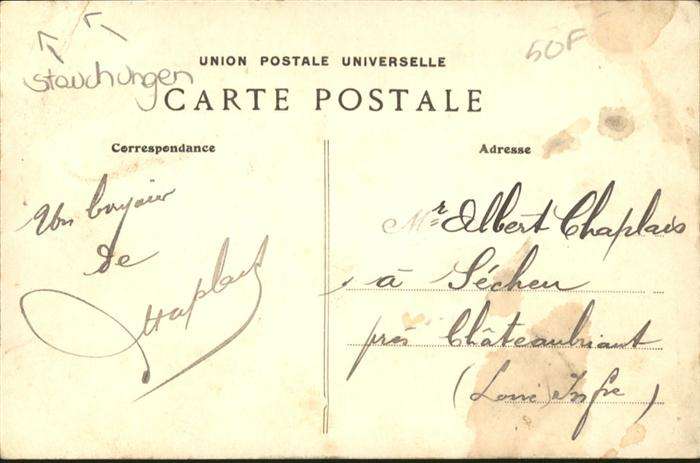 stauchungen
50F
UNION POSTALE UNIVERSELLE
CARTE POSTALE
Correspondance
Adresse
Un bonjour
de
Chaplais
Mr Albert Chaplais
à
près Châteaubriant
(Loire Infre)